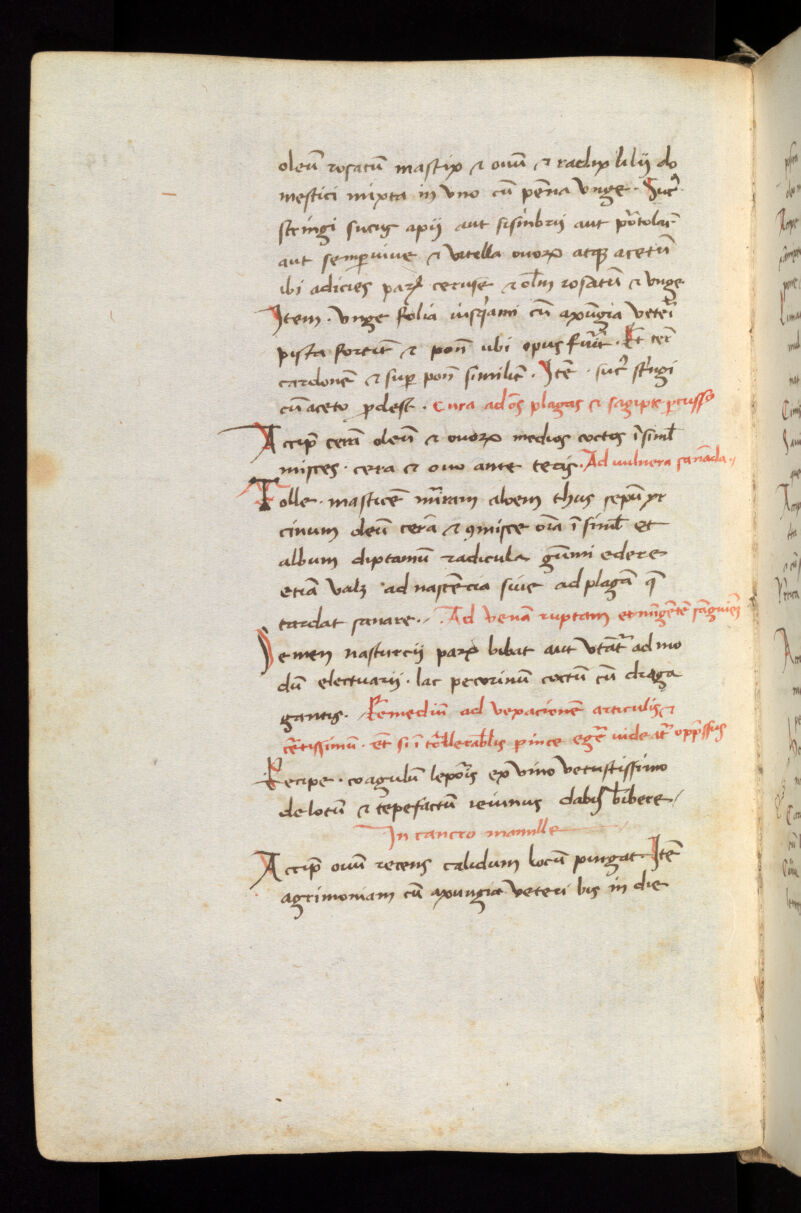 oleū rosatū mastix ⁊ ouū ⁊ radix lilij do
mestici mixta in vno cū pēna vnge. Suc᷑
stringi sucus apij aut sisimbrij aut portolac̄
aut semperuiue ⁊ vitella ouorꝝ atqꝫ acetū
ibi adicies parꝝ ceruse ⁊ olm̄ rosatū ⁊ vnge
Item. vnge folia iusqami cū axūgia veteri
pista fortit᷑ ⁊ pone ubi opus fuerit. Et ter᷑
cardonē ⁊ suꝑ pone similit᷑. Itē. suc᷑ stringi
cū aceto ꝓdest. Cura ad oēs plagas ⁊ sagipte ꝑcussꝰ
Accipe cerā oleū ⁊ ouorꝝ medios coctos ī simul
misces. cera ⁊ ouo ante tecis. Ad vulnera sanāda
Tolle. masticē mirram aloem thus sepū yr
cinum oleū cerā ⁊ ꝯmisce oīa ī simul et
album diptamū radicula gūmi edere
etiā valꝫ ad nascēcia siue ad plagā q̄
tardat sanare. Ad venā ruptam et mīgētē sāguinē
Semen nasturcij parꝝ bibat aut vtat᷑ ad mo
dū electuarij. lac pecorinū coctū cū draga
gantis. Remediū ad vexacionē articulis ⁊
certissimū. et si ī tollerabilis
Recipe. coagulū leporis ex vino vetustissimo
delotū ⁊ tepefactū ieiunus dabis bibere
In cancro mamille
Accipe ouū recens calidum locū pungat. Itē
agrimoniam cū axungia veteri bis in die